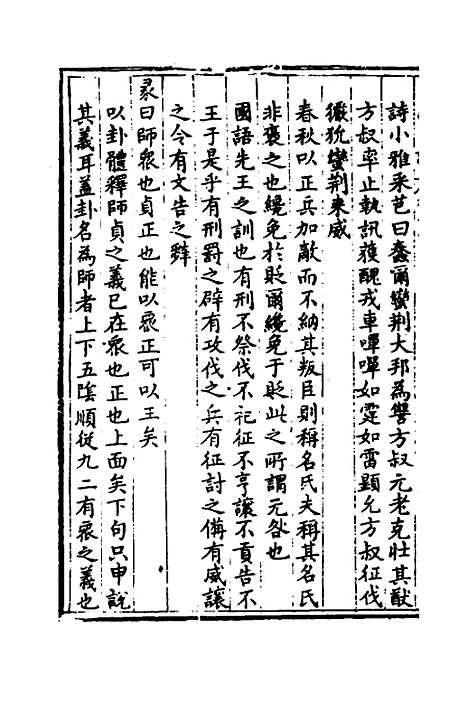 詩小雅采芑曰蠢爾蠻荆大邦為讐方叔元老克壯其猷
方叔率止執訊獲醜戎車嘽嘽如霆如雷顯允方叔征伐
玁狁蠻荆來威
春秋以正兵加敵而不納其叛臣則稱名氏夫稱其名氏
非褒之也纔免於貶爾纔免于貶此之所謂元咎也
國語先王之訓也有刑不祭伐不祀征不亨讓不貢告不
王于是乎有刑罰之辟有攻伐之兵有征討之備有威讓
之令有文告之辭
彖曰師衆也貞正也能以衆正可以王矣
以卦體釋師貞之義已在衆也正也上面矣下句只申説
其義耳蓋卦名為師者上下五陰順從九二有衆之義也